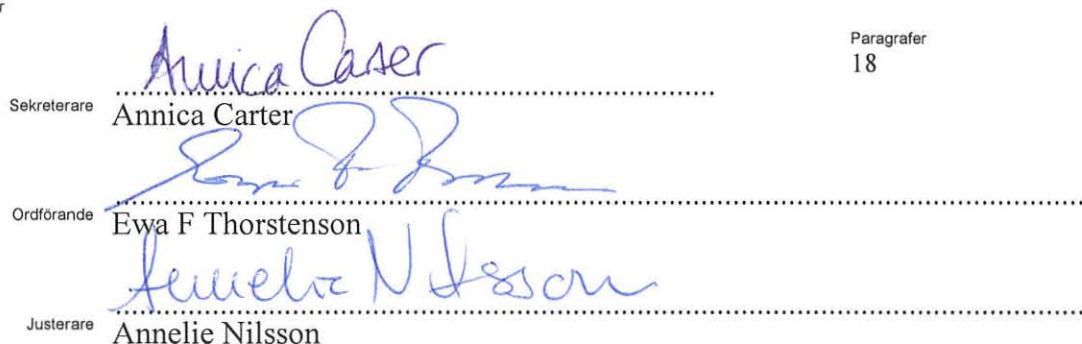 r
Annica Carter
Paragrafer
18
Sekreterare
Annica Carter
Ordförande
Ewa F Thorstenson
Annelie Nilsson
Justerare
Annelie Nilsson